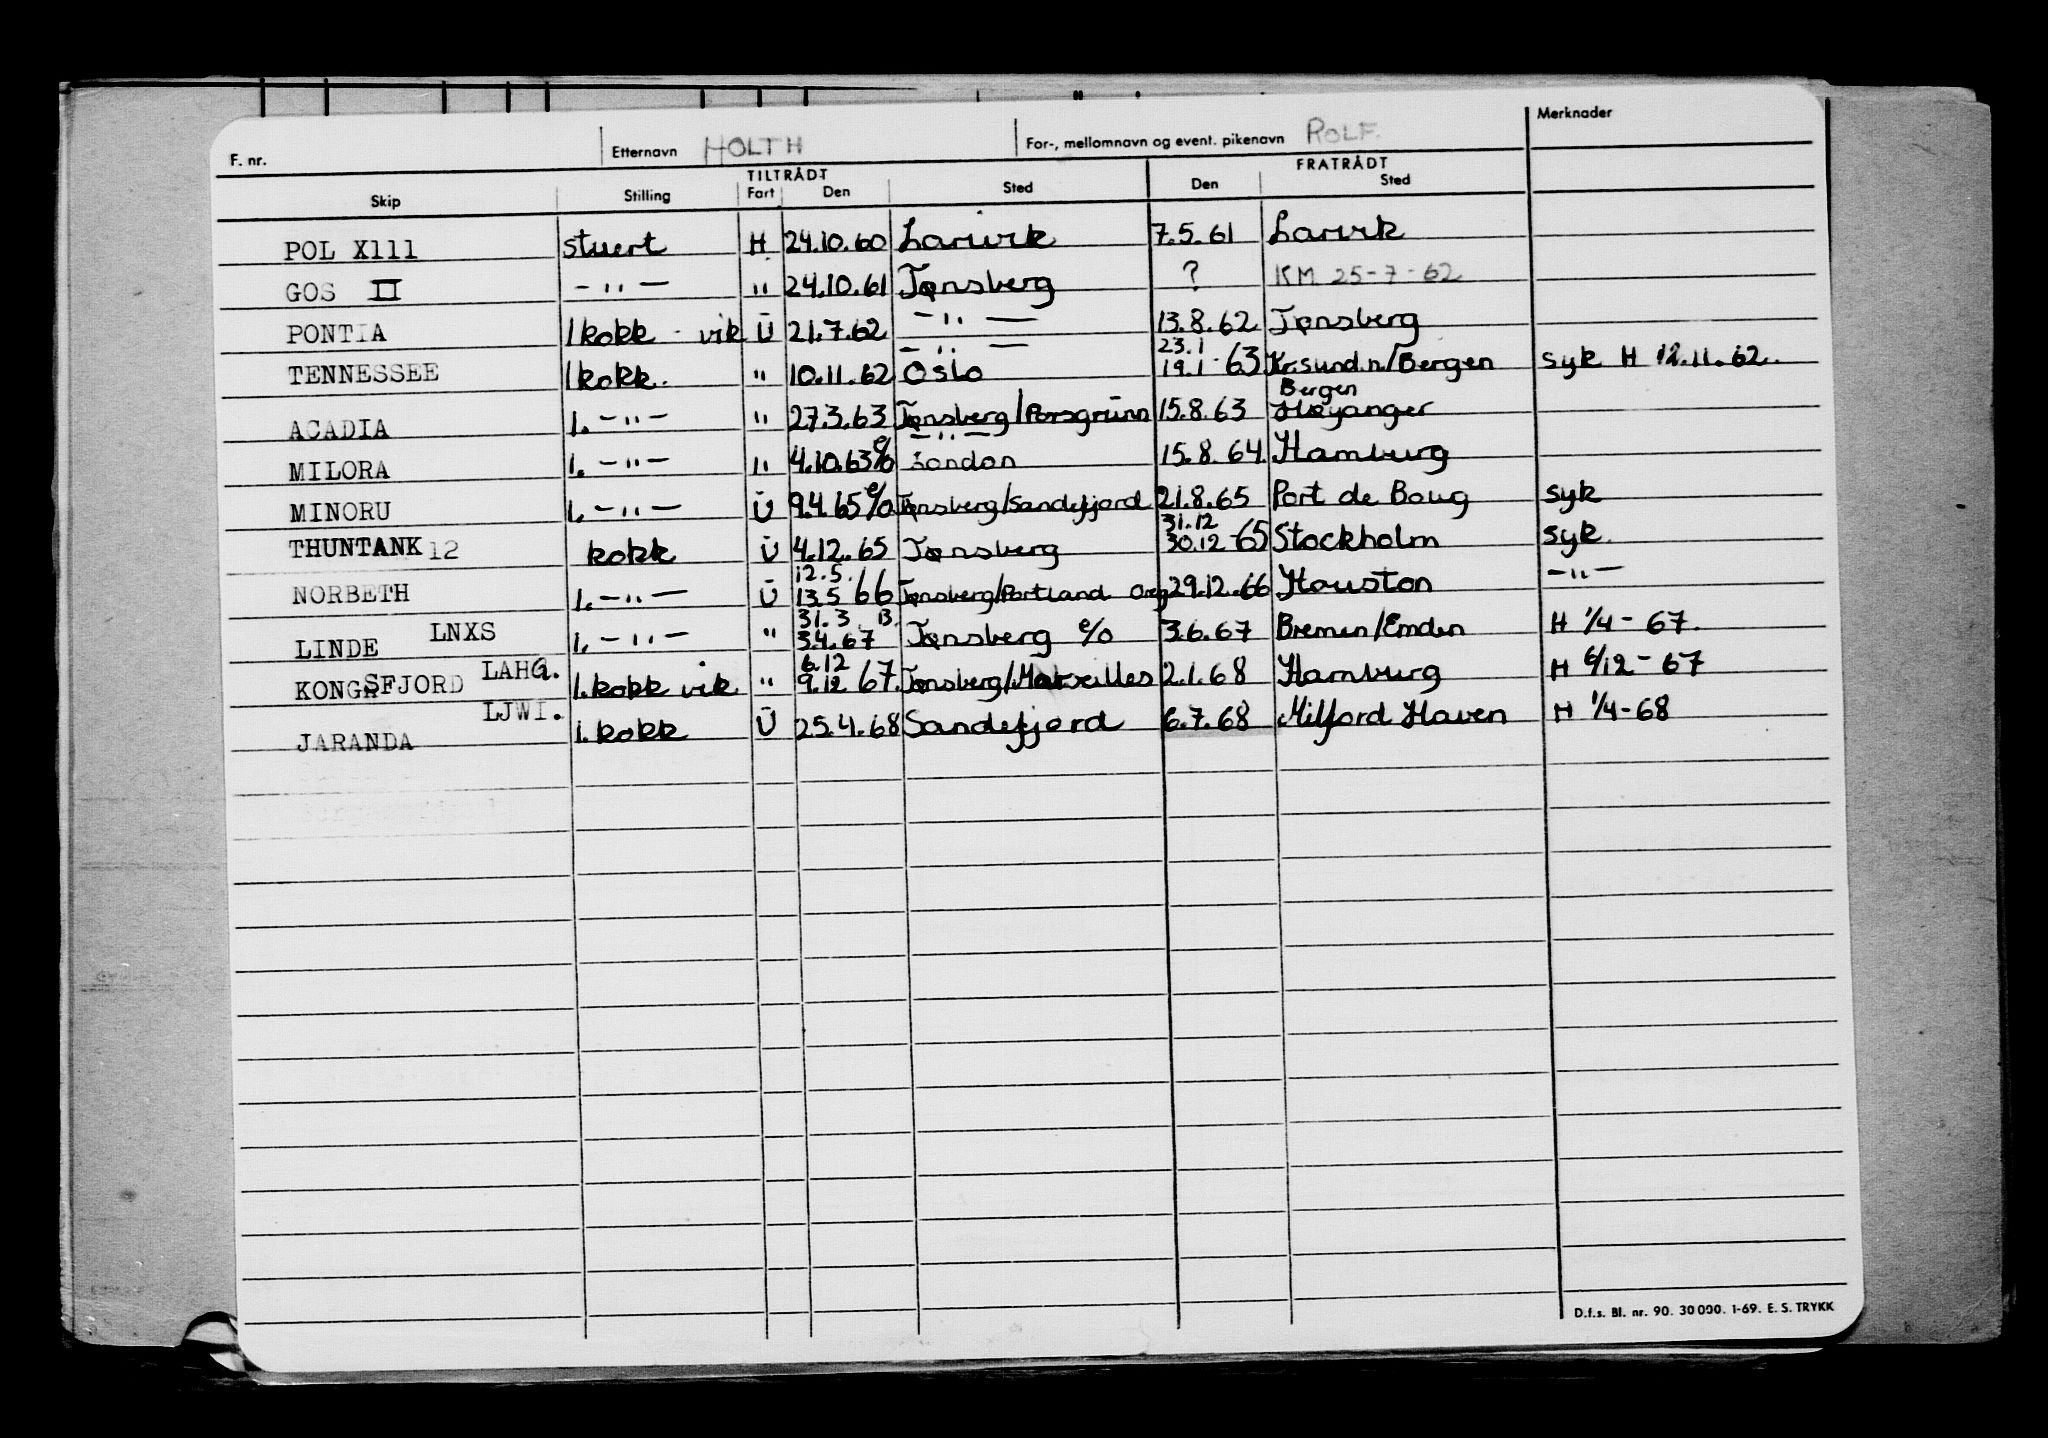 F. nr. Etternavn HOLTH For-, mellomnavn og event. pikenavn ROLF. Merknader
TILTRÅDT FRATRÅDT
Skip Stilling Fart Den Sted Den Sted
POL X111 stuert H 24.10.60 Larvik 7.5.61 Larvik
GOS II - " - " 24.10.61 Tønsberg ? KM 25-7-62
PONTIA 1 kokk - vik U 21.7.62 - " - 13.8.62 Tønsberg
- " - 23.1
TENNESSEE 1 kokk. " 10.11.62 Oslo 19.1-63 Kr.sund.n/Bergen syk H 12.11.62.
Bergen
ACADIA 1. - " - " 27.3.63 Tønsberg/Porsgrunn 15.8.63 Høyanger
- " -
MILORA 1. - " - " 4.10.63 e/o London 15.8.64. Hamburg
MINORU 1. - " - U 9.4.65 e/o Tønsberg/Sandefjord 21.8.65 Port de Boug syk
31.12
THUNTANK 12 kokk U 4.12.65 Tønsberg 30.12-65 Stockholm syk.
12.5.
NORBETH 1. - " - U 13.5 66 Tønsberg/Portland Oreg 29.12.66 Houston - " -
31.3 13.
LINDE LNXS 1. - " - " 3.4.67 Tønsberg e/o 3.6.67 Bremen/Emden H 1/4-67.
6.12
KONGSFJORD LAHG. 1. kokk vik " 9.12 67. Tønsberg/Marseilles 2.1.68 Hamburg H 6/12-67
JARANDA LJWI. 1. kokk U 25.4.68 Sandefjord 6.7.68 Milford Haven H 1/4-68
D.f.s. Bl. nr. 90. 30000. 1-69. E. S. TRYKK